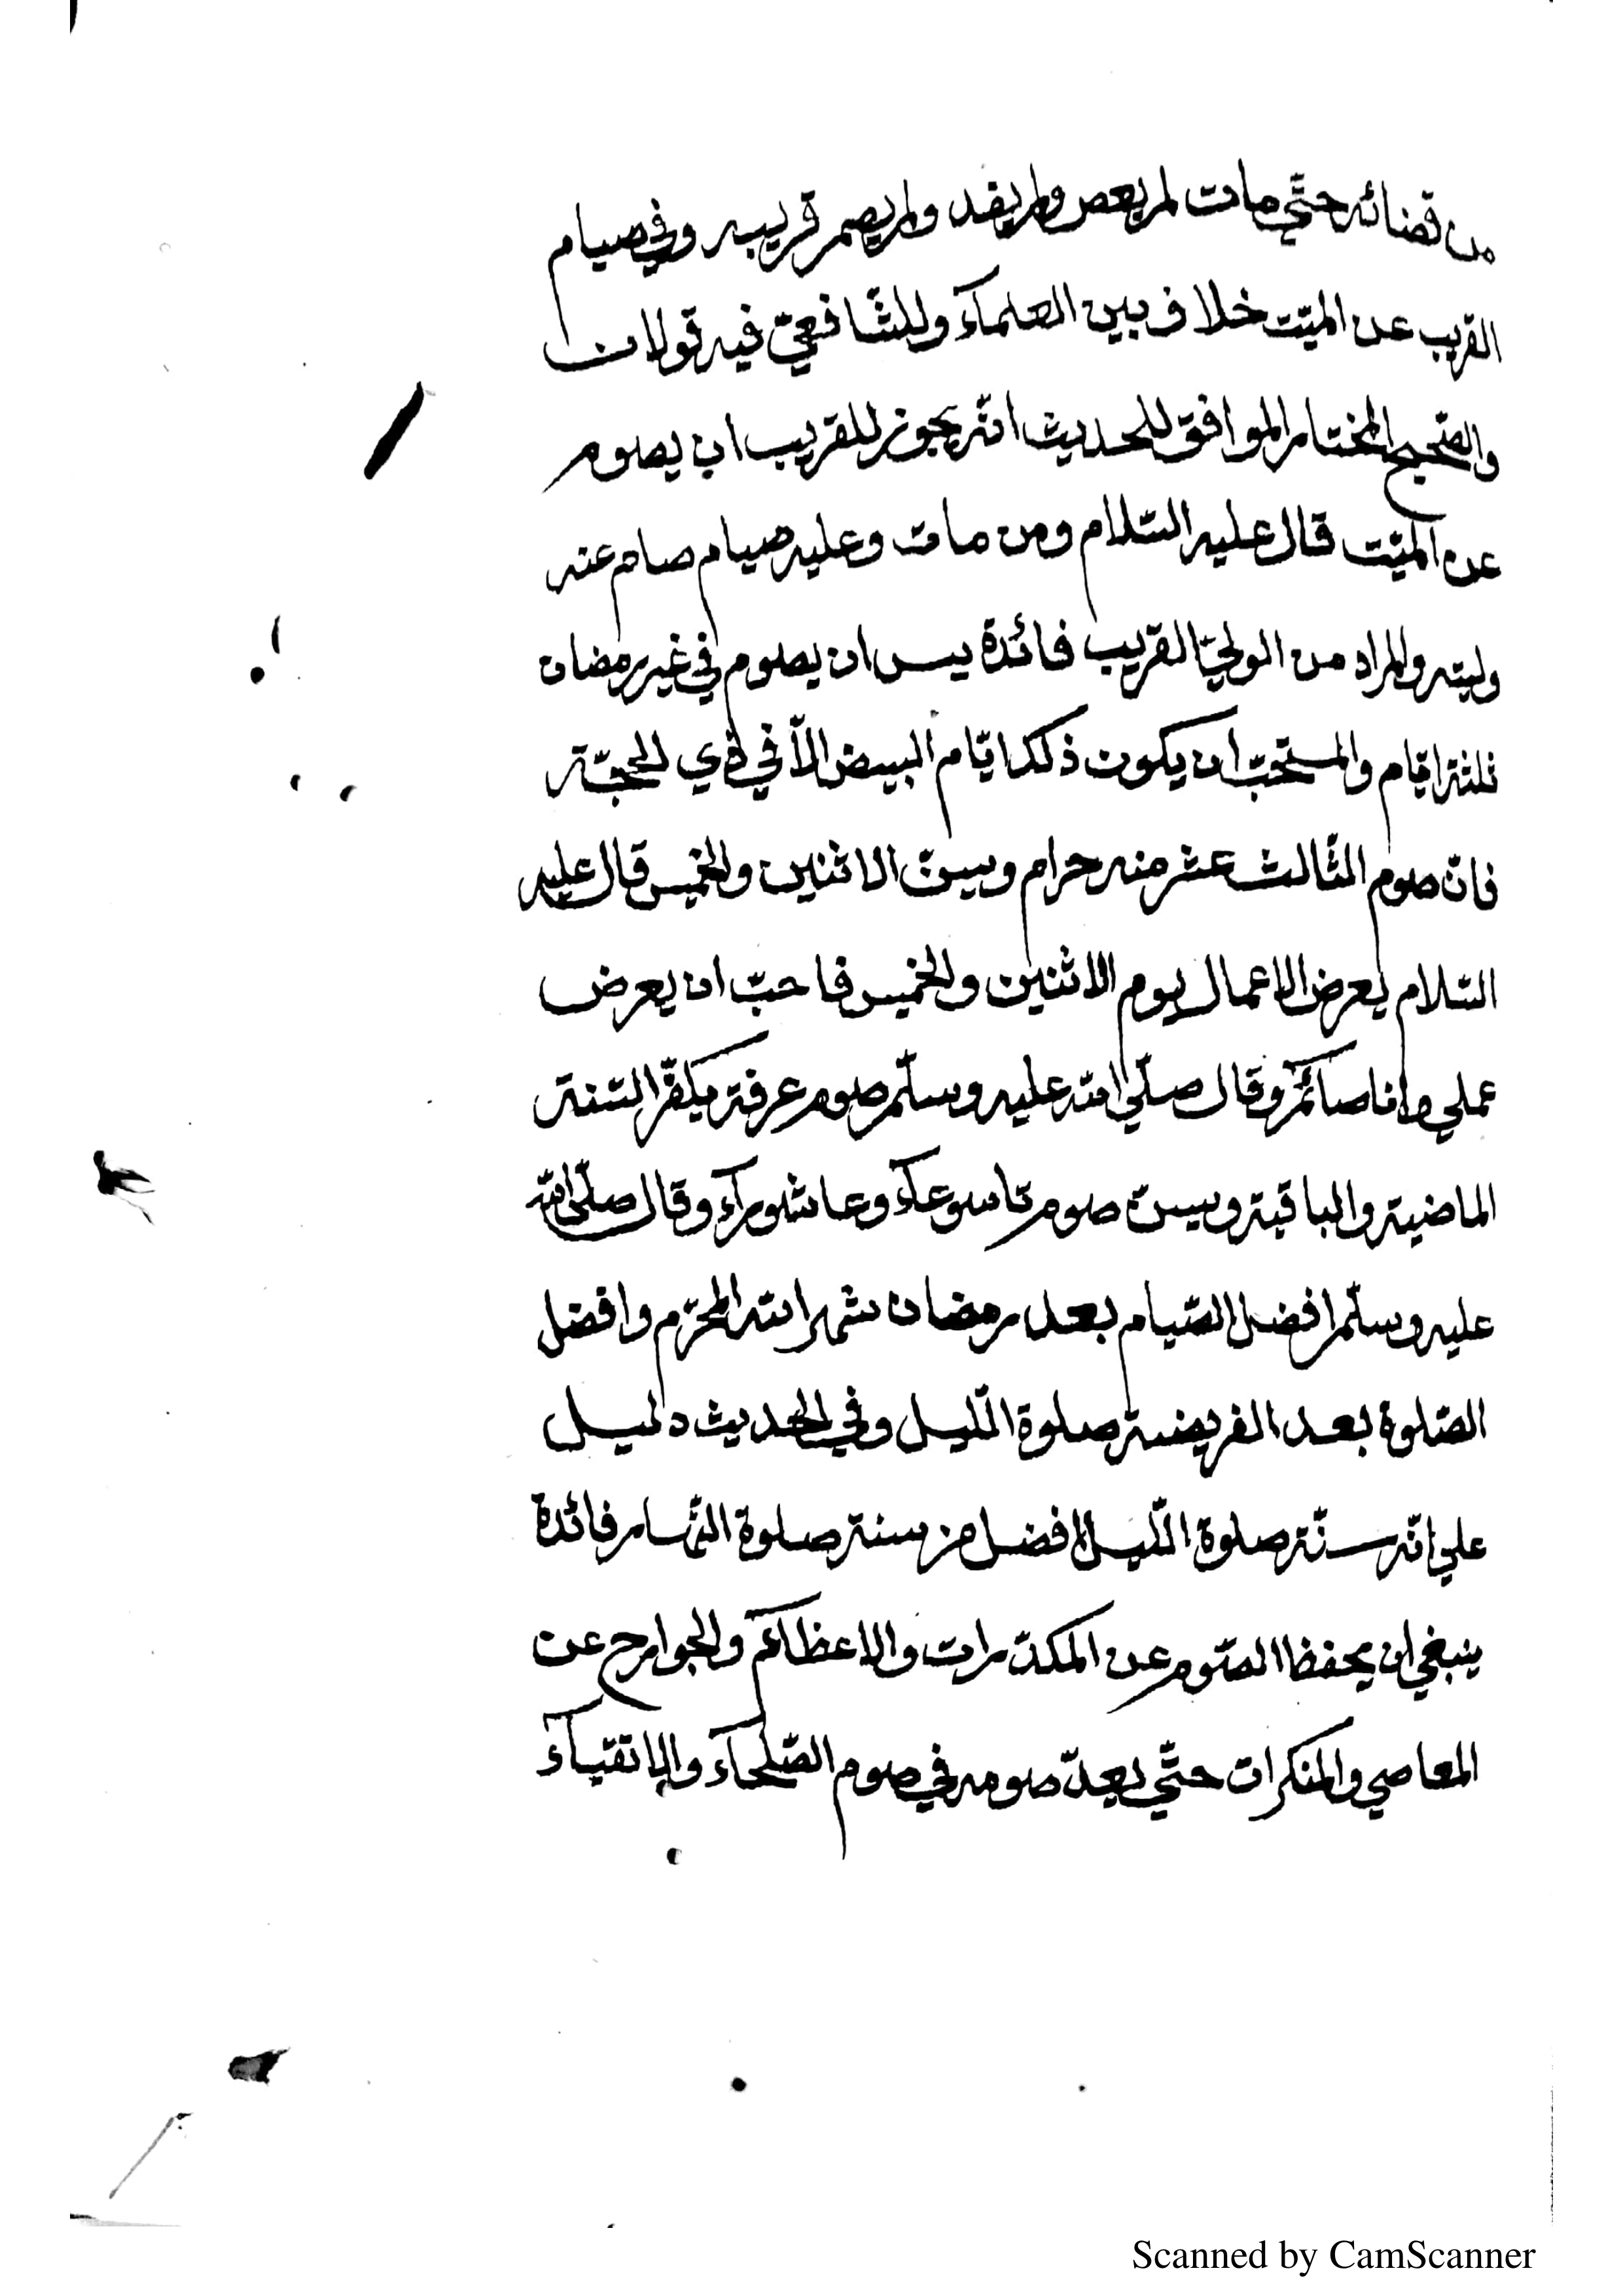 من قضائه حتّي مات لم يعص ولم يفد ولم يصم قريبه وفي صيام
القريب عن الميّت خلاف بين العلمآء وللشّافعيّ فيه قولان
والصّحيح المختار الموافق للحديث انّه يجوز للقريب ان يصوم
عن الميّت قال عليه السّلام ومن مات وعليه صيام صام عنه
وليّه والمراد من الوليّ القريب فائدة يسن ان يصوم في غير رمضان
ثلثة ايّام والمستحبّ ان يكون ذلك ايّام البيض الّا في ذي الحجّة
فانّ صوم الثّالث عشر منه حرام ويسنّ الاثنين والخميس قال عليه
السّلام يعرض الاعمال يوم الاثنين والخميس فاحبّ ان يعرض
عملي وانا صائم وقال صلّي الله عليه وسلّم صوم عرفة يكفّر السّنة
الماضية والباقية ويسنّ صوم تاسوعآء وعاشورآء وقال صلّي الله
عليه وسلّم افضل الصّيام بعد رمضان شهر الله المحرّم وافضل
الصّلوة بعد الفريضة صلوة اللّيل وفي الحديث دليل
علي انّه سنّة صلوة اللّيل افضل من سنة صلوة النّهار فائدة
ينبغي ان يحفظ الصّوم عن المكدّرات والاعظآم والجوارح عن
المعاصي والمنكرات حتّي يعدّ صومه في صوم الصّلحآء والاتقيآء
Scanned by CamScanner